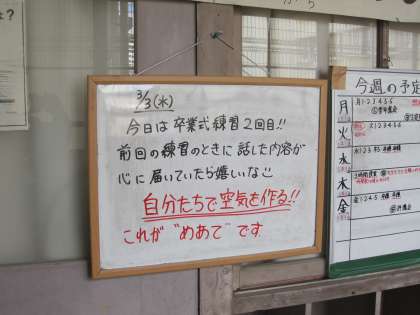 3/3(水)
今日は卒業式練習2回目!!
前回の練習のときに話した内容が
心に届いていたら嬉しいな
自分たちで空気を作る!!
これが"めあて"です
今週の予定
月
火
水
木
金